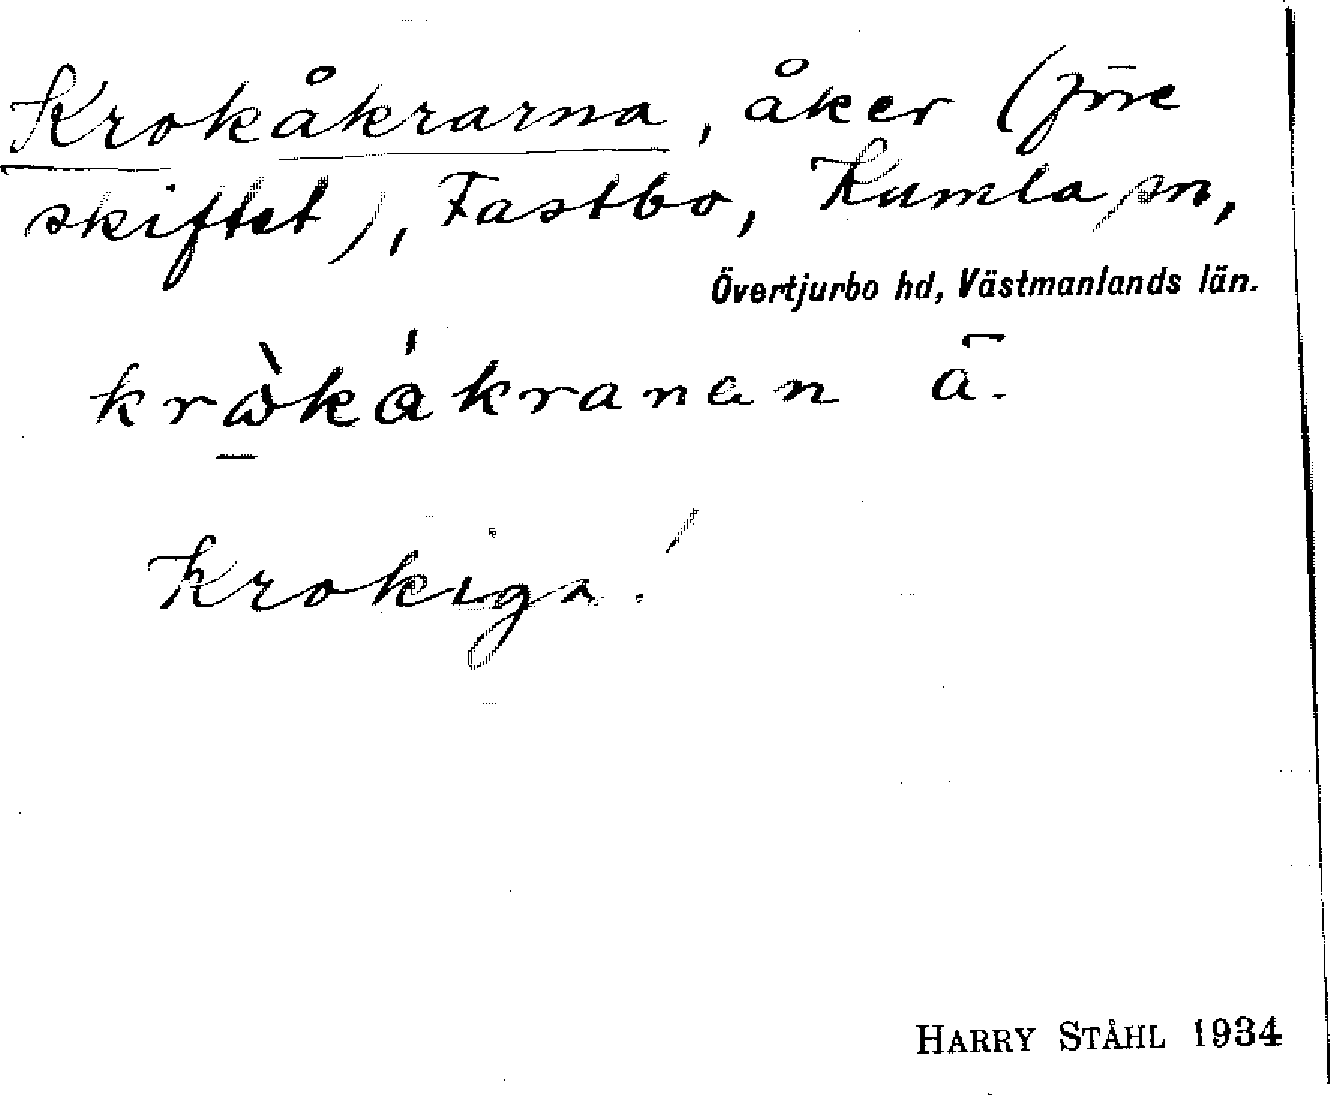 Krokåkrarna, åker (före
skiftet), Fastbo, Kumla sn,
Övertjurbo hd, Västmanlands län.
krὼ̠kákranɑn ā.
Krokiga!
HARRY STÅHL 1934